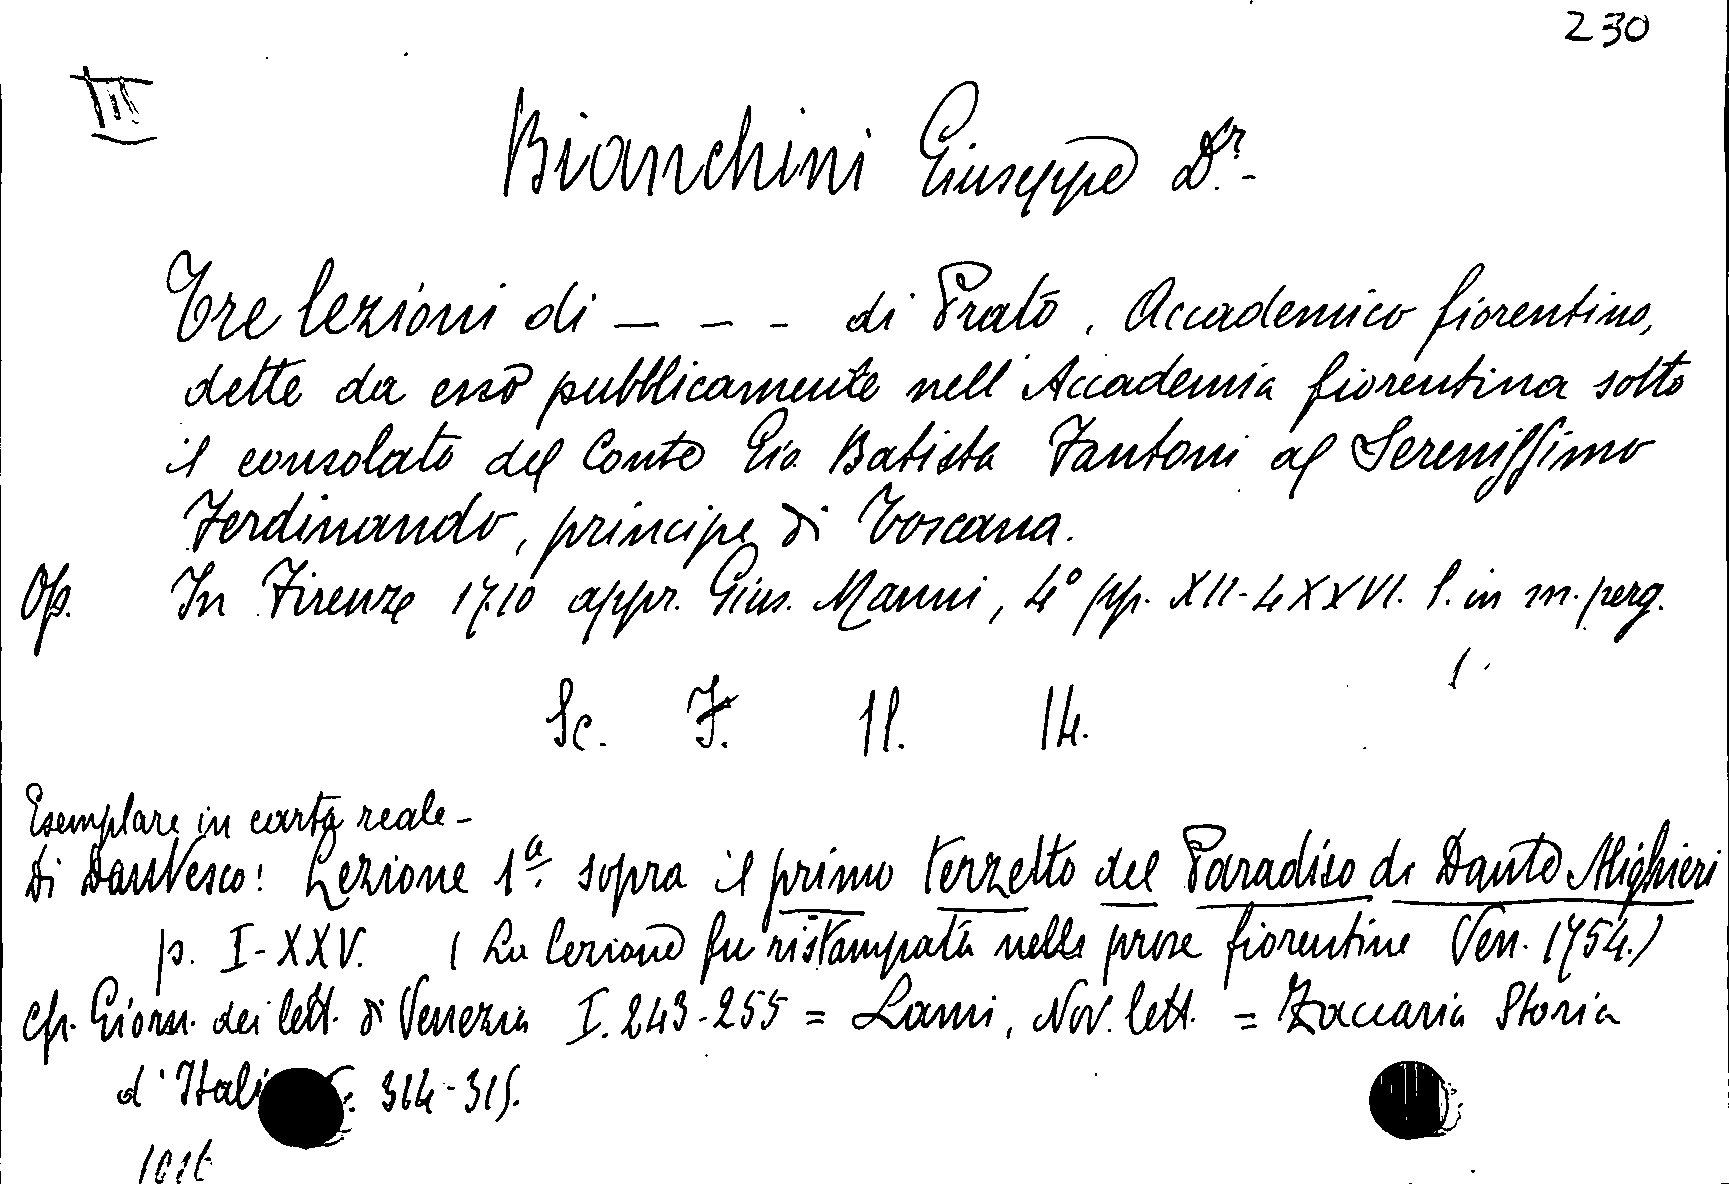 230
III
Bianchini Giuseppe Dr.-
Tre lezioni di — – - di Prato, Accademico fiorentino,
dette da esso pubblicamente nell'Accademia fiorentina sotto
il consolato del Conte Gio. Batista Fantoni al Serenissimo
Ferdinando, principe di Toscana.
Op. In Firenze 1710 appr. Gius. Manni, 4° pp. XII-LXXVI. l. in m. perg.
Sc. F. 11. 14.
Esemplare in carta reale -
Di Dantesco: Lezione 1a. sopra il primo terzetto del Paradiso di Dante Alighieri
p. I-XXV. (La lezione fu ristampata nelle prose fiorentine Ven. 1754.)
cfr. Giorn. dei lett. di Venezia I. 243-255 = Lami, Nov. lett. = Zaccaria Storia
d'Itali 314-315.